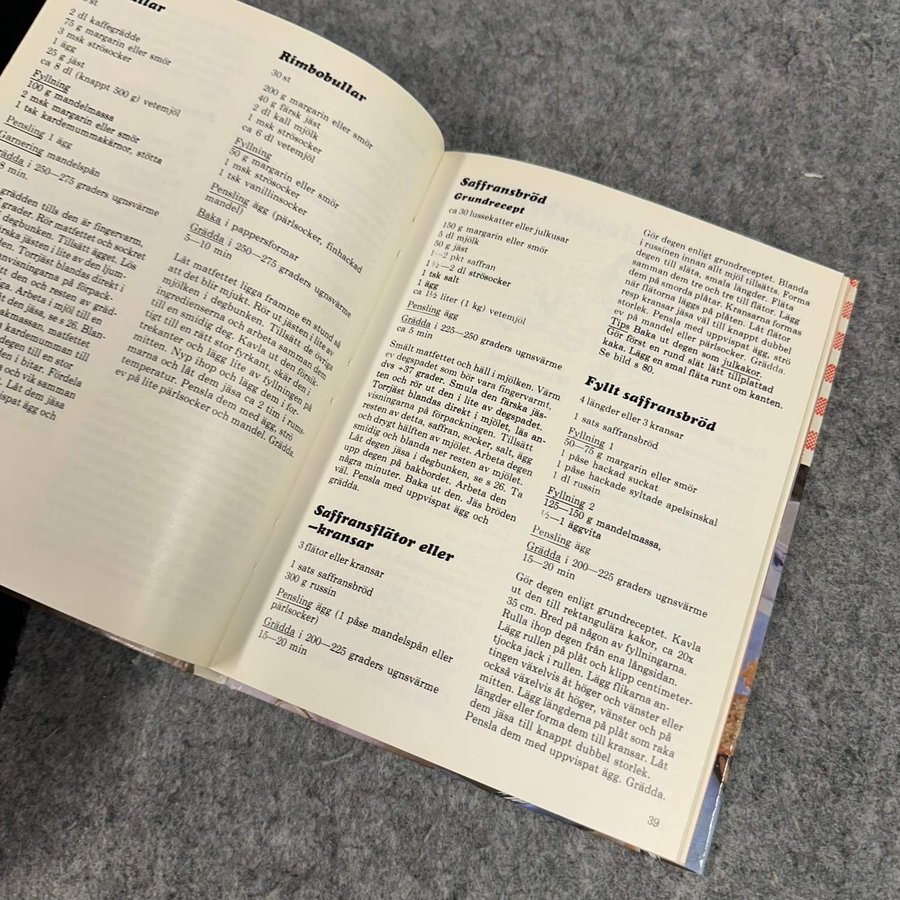 llar
st
2 dl kaffegrädde
75 g margarin eller smör
3 msk strösocker
1 ägg
25 g jäst
ca 8 dl (knappt 500 g) vetemjöl
Fyllning
100 g mandelmassa
2 msk margarin eller smör
1 tsk kardemummakärnor, stötta
Pensling 1 ägg
Garnering mandelspån
Grädda i 250—275 graders ugnsvärme
8 min.
grädden tills den är fingervarm,
grader. Rör matfettet och sockret
i degbunken. Tillsätt ägget. Lös
färska jästen i lite av den ljum-
Torrjäst blandas direkt i
nvisningarna på förpackningen.
tt den och resten av gräd-
ga. Arbeta i mjöl till en
åt den jäsa, se s 26. Blan-
akmassan, matfettet
h kardemumman till
degen till en stor
den i bitar. Fördela
och vik samman
t. Låt dem jäsa
vispat ägg och
Rimbobullar
30 st
200 g margarin eller smör
40 g färsk jäst
2 dl kall mjölk
1 msk strösocker
ca 6 dl vetemjöl
Fyllning
50 g margarin eller smör
1 msk strösocker
1 tsk vanillinsocker
Pensling ägg (pärlsocker, finhackad
mandel)
Baka i pappersformar
Grädda i 250—275 graders ugnsvärme
5—10 min
Låt matfettet ligga framme en stund så
att det blir mjukt. Rör ut jästen i lite av
mjölken i degbunken. Tillsätt de övriga
ingredienserna och arbeta samman dem
till en smidig deg. Kavla ut den försik-
tigt till en rätt stor fyrkant, skär den i
trekanter och lägg lite av fyllningen på
mitten. Nyp ihop och lägg dem i for-
marna och låt dem jäsa ca 2 tim i rums-
temperatur. Pensla dem med ägg, strö
ev på lite pärlsocker och mandel. Grädda.
Saffransbröd
Grundrecept
ca 30 lussekatter eller julkusar
150 g margarin eller smör
5 dl mjölk
50 g jäst
1—2 pkt saffran
1½—2 dl strösocker
1 tsk salt
1 ägg
ca 1½ liter (1 kg) vetemjöl
Pensling ägg
Grädda i 225—250 graders ugnsvärme
ca 5 min
Smält matfettet och häll i mjölken. Värm
av degspadet som bör vara fingervarmt,
dvs +37 grader. Smula den färska jäs-
ten och rör ut den i lite av degspadet.
Torrjäst blandas direkt i mjölet, läs an-
visningarna på förpackningen. Tillsätt
resten av detta, saffran, socker, salt, ägg
och drygt hälften av mjölet. Arbeta degen
smidig och blanda ner resten av mjölet.
Låt degen jäsa i degbunken, se s 26. Ta
upp degen på bakbordet. Arbeta den
några minuter. Baka ut den. Jäs bröden
väl. Pensla med uppvispat ägg och
grädda.
Saffransflätor eller
—kransar
3 flätor eller kransar
1 sats saffransbröd
300 g russin
Pensling ägg (1 påse mandelspån eller
pärlsocker)
Grädda i 200—225 graders ugnsvärme
15—20 min
Gör degen enligt grundreceptet. Blanda
i russinen innan allt mjöl tillsätts. Forma
degen till släta, smala längder. Fläta
samman dem tre och tre till flätor. Lägg
dem på smorda plåtar. Kransarna formas
när flätorna läggs på plåten. Låt flätor
resp kransar jäsa väl till knappt dubbel
storlek. Pensla med uppvispat ägg, strö
ev på mandel eller pärlsocker. Grädda.
Tips Baka ut degen som Julkakor.
Gör först en rund slät lätt tillplattad
kaka. Lägg en smal fläta runt om kanten.
Se bild s 80.
Fyllt saffransbröd
4 längder eller 3 kransar
1 sats saffransbröd
Fyllning 1
50—75 g margarin eller smör
1 påse hackad suckat
1 påse hackade syltade apelsinskal
1 dl russin
Fyllning 2
125—150 g mandelmassa,
½—1 äggvita
Pensling ägg
Grädda i 200—225 graders ugnsvärme
15—20 min
Gör degen enligt grundreceptet. Kavla
ut den till rektangulära kakor, ca 20x
35 cm. Bred på någon av fyllningarna.
Rulla ihop degen från ena långsidan.
Lägg rullen på plåt och klipp centimeter-
tjocka jack i rullen. Lägg flikarna an-
tingen växelvis åt höger och vänster eller
också växelvis åt höger, vänster och på
mitten. Lägg längderna på plåt som raka
längder eller forma dem till kransar. Låt
dem jäsa till knappt dubbel storlek.
Pensla dem med uppvispat ägg. Grädda.
39